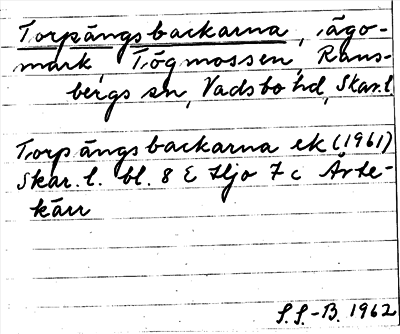 Torpängsbackarna, ägo-
mark, Tögmossen, Rans-
bergs sn, Vadsbo hd, Skar.l.
Torpängsbackarna ek (1961)
Skar. l. bl. 8 E Hjo 7 c Årte-
kärr
S.S.-B. 1962